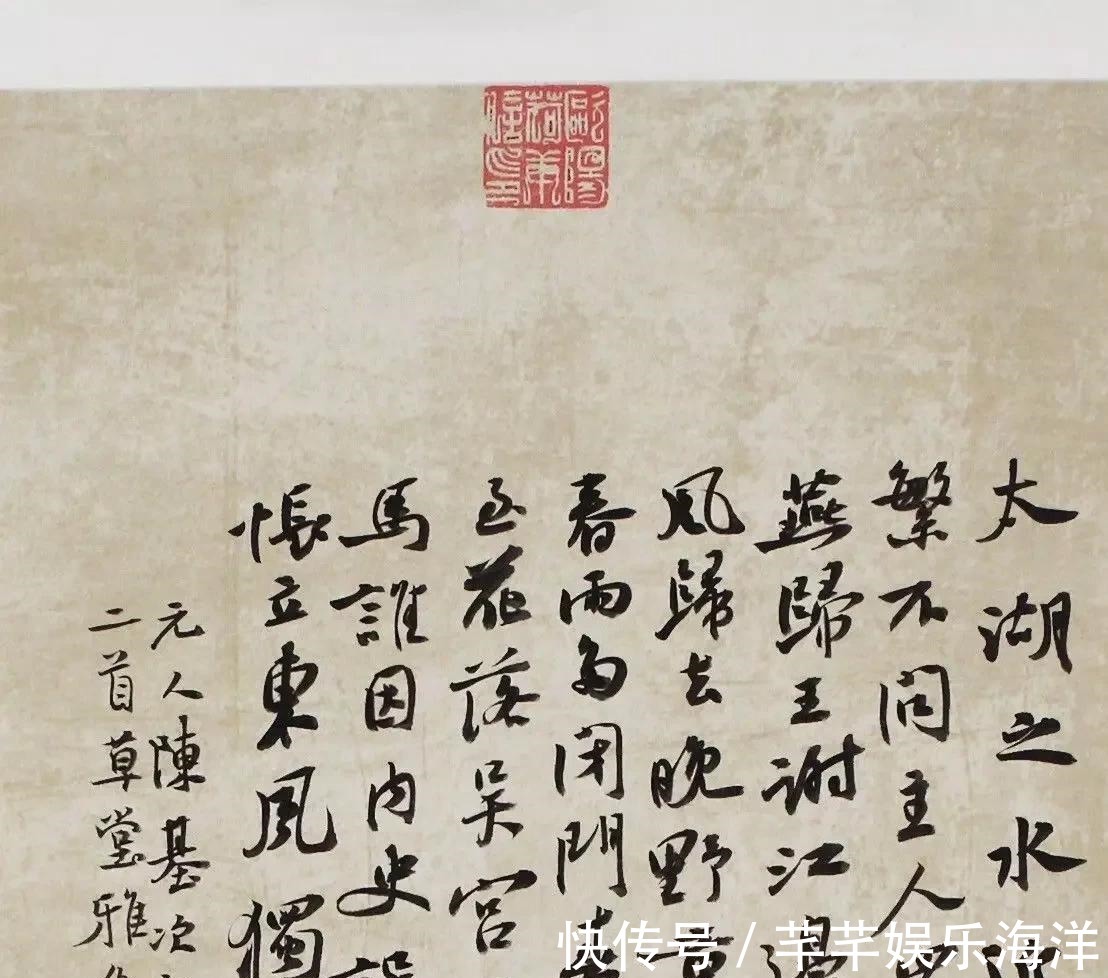 歐陽
太湖之水
繁不問主人
燕歸王謝江
風歸去晚野
春雨多闭門
花落吴宫
馬誰因内史
悵立東風獨
元人陳基次
二首草堂雅
快传号 / 芊芊娱乐海洋